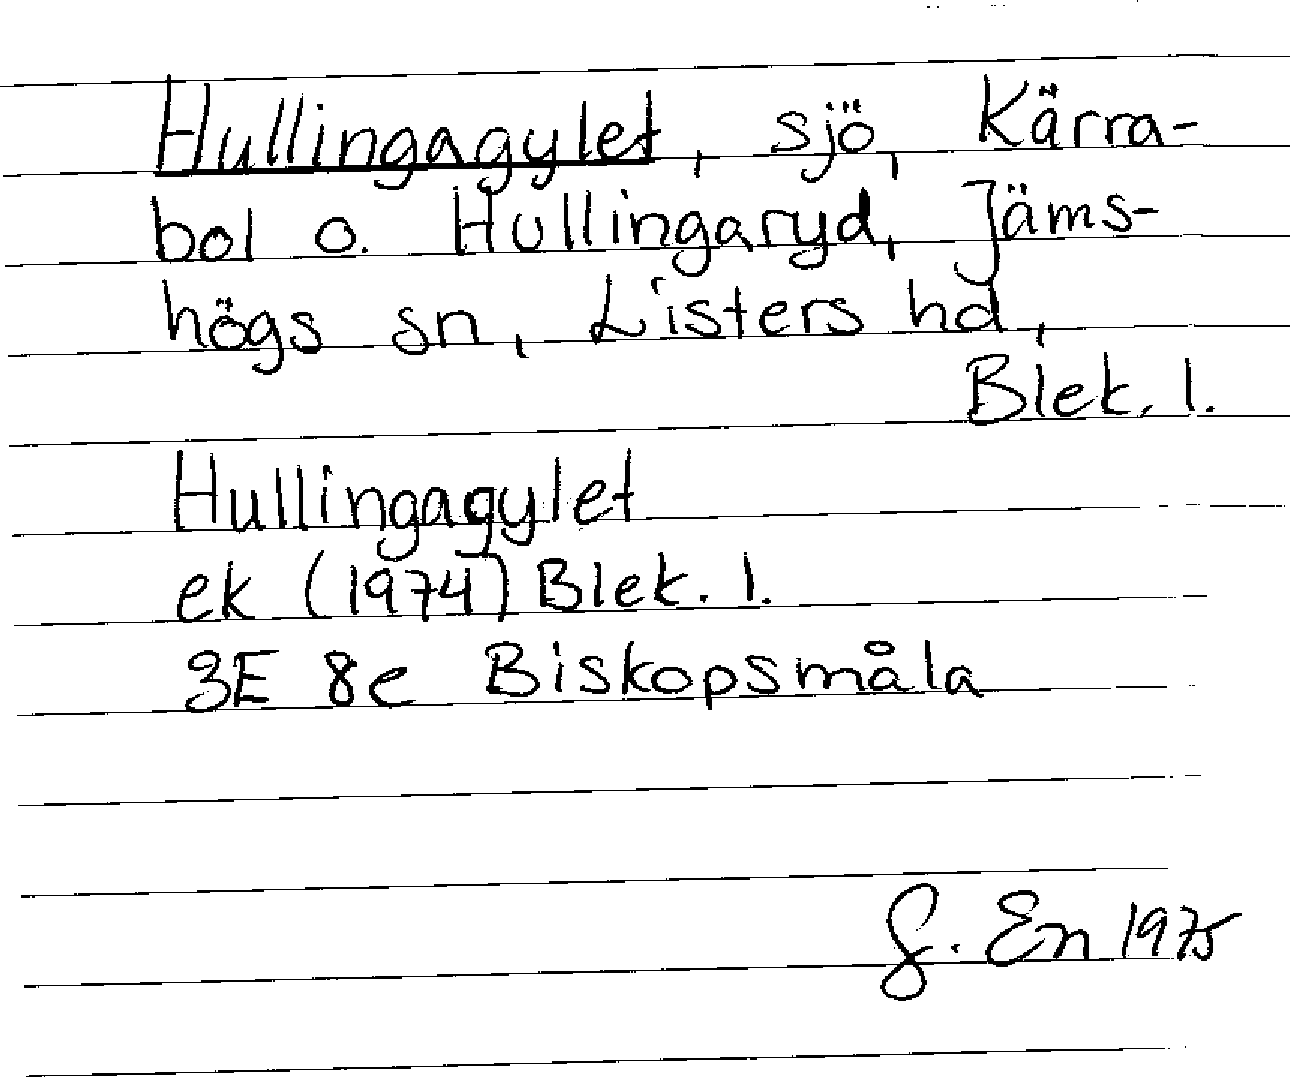 Hullingagylet, sjö, Kärra-
bol o. Hullingaryd, Jäms-
högs sn, Listers hd,
Blek. l.
Hullingagylet
ek (1974) Blek. l.
3E 8e Biskopsmåla
G. En 1975